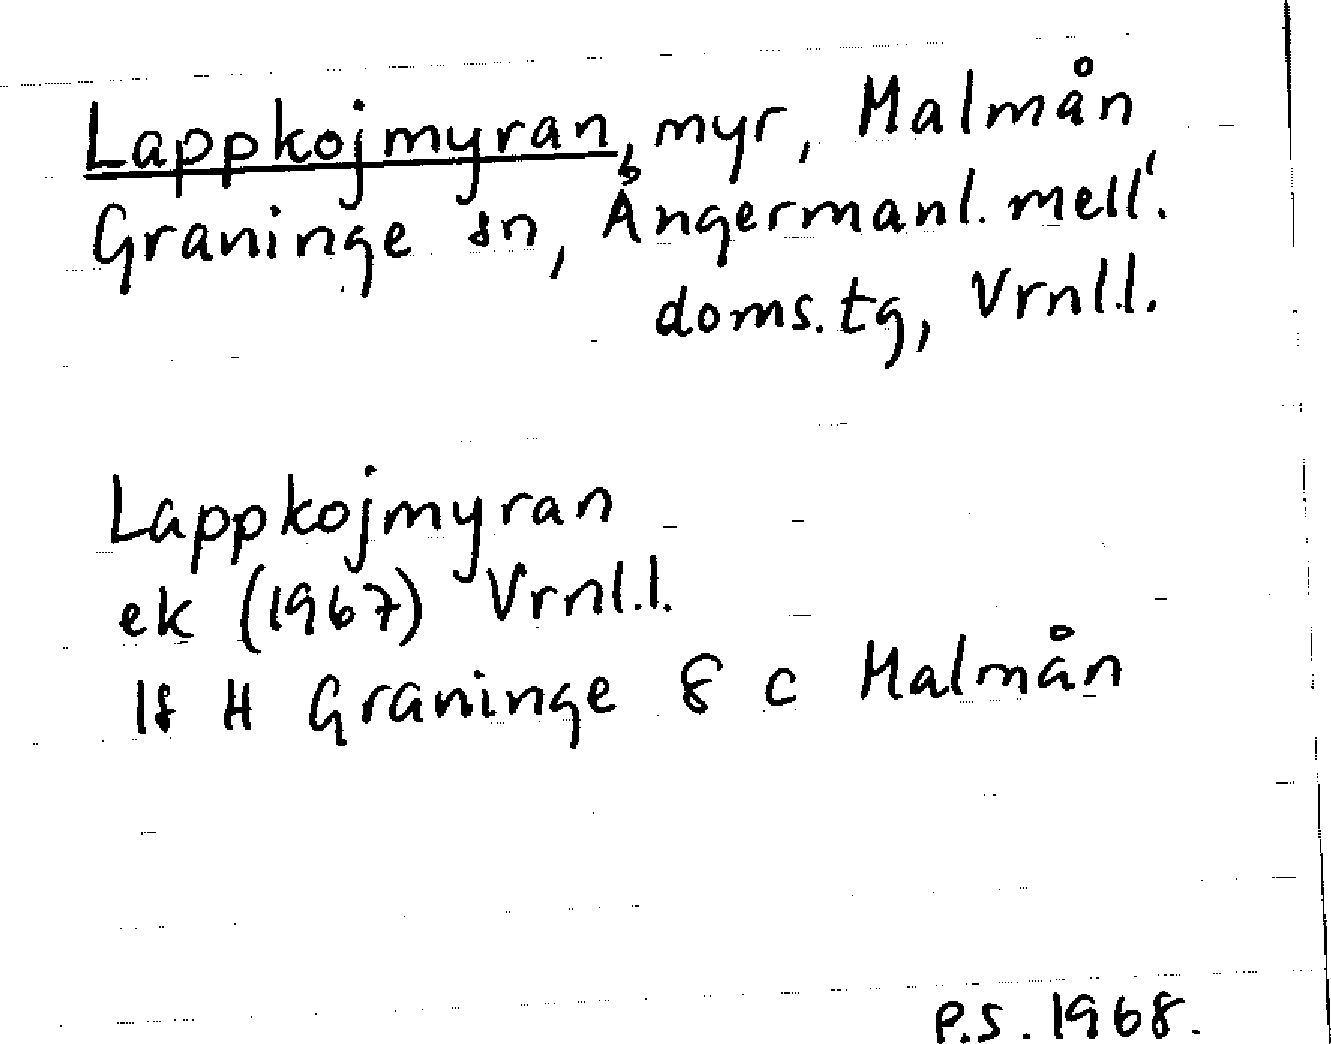 Lappkojmyran, myr, Malmån
Graninge sn, Ångermanl. mell.
doms.tg, Vrnl.l.
Lappkojmyran
ek (1967) Vrnl.l.
lf H Graninge 8 c Malmån
P.S. 1968.